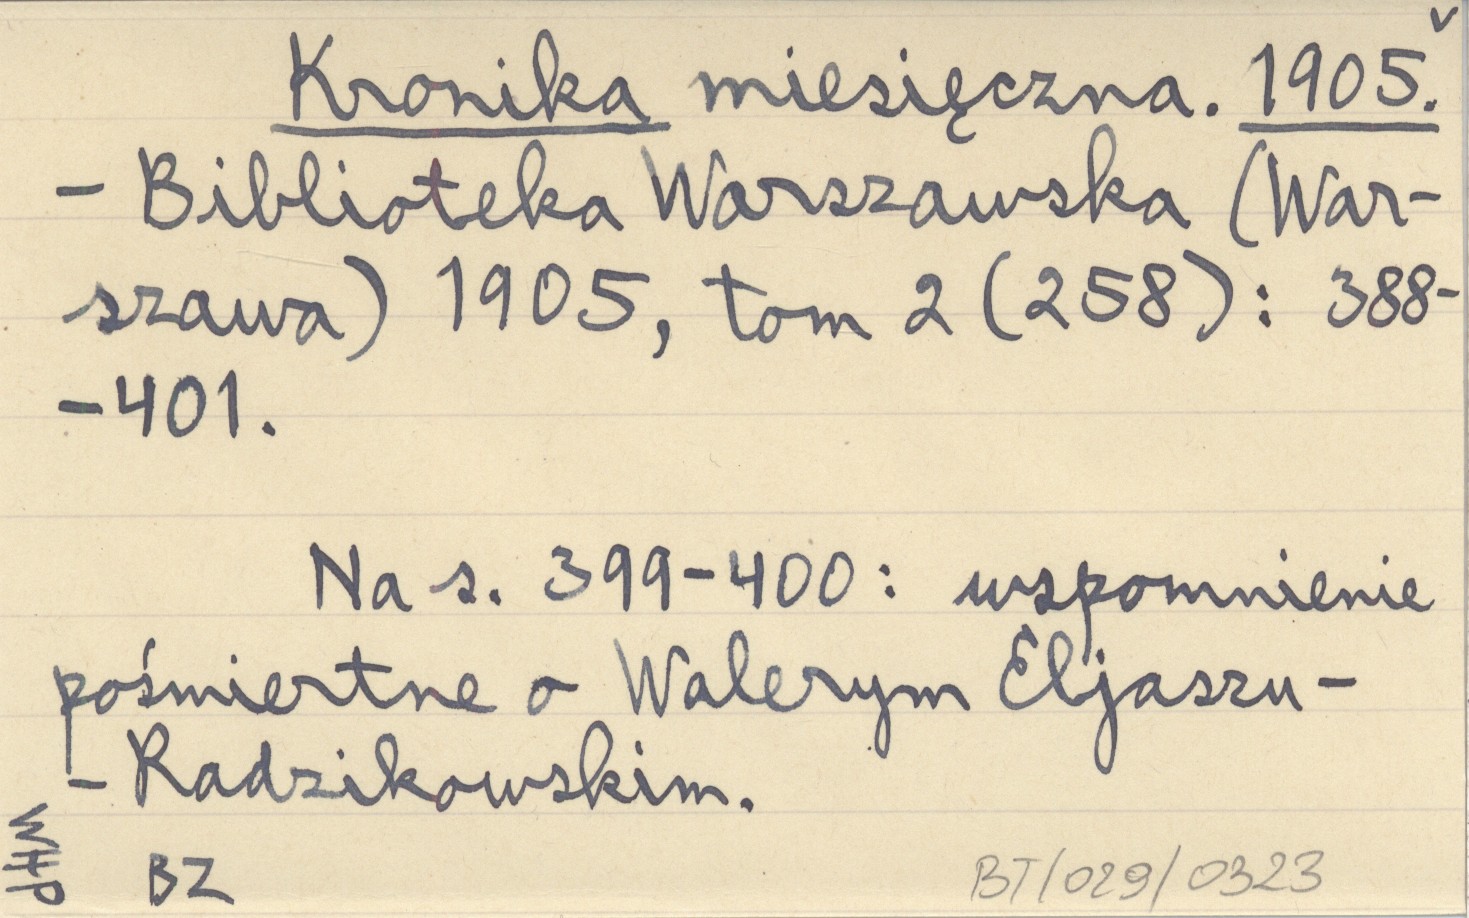 v
Kronika miesięczna. 1905.
- Biblioteka Warszawska (War-
szawa) 1905, tom 2 (258): 388-
-401.
Na s. 399-400: wspomnienie
pośmiertne o Walerym Eljaszu-
-Radzikowskim.
WHP
BZ
BT/029/0323